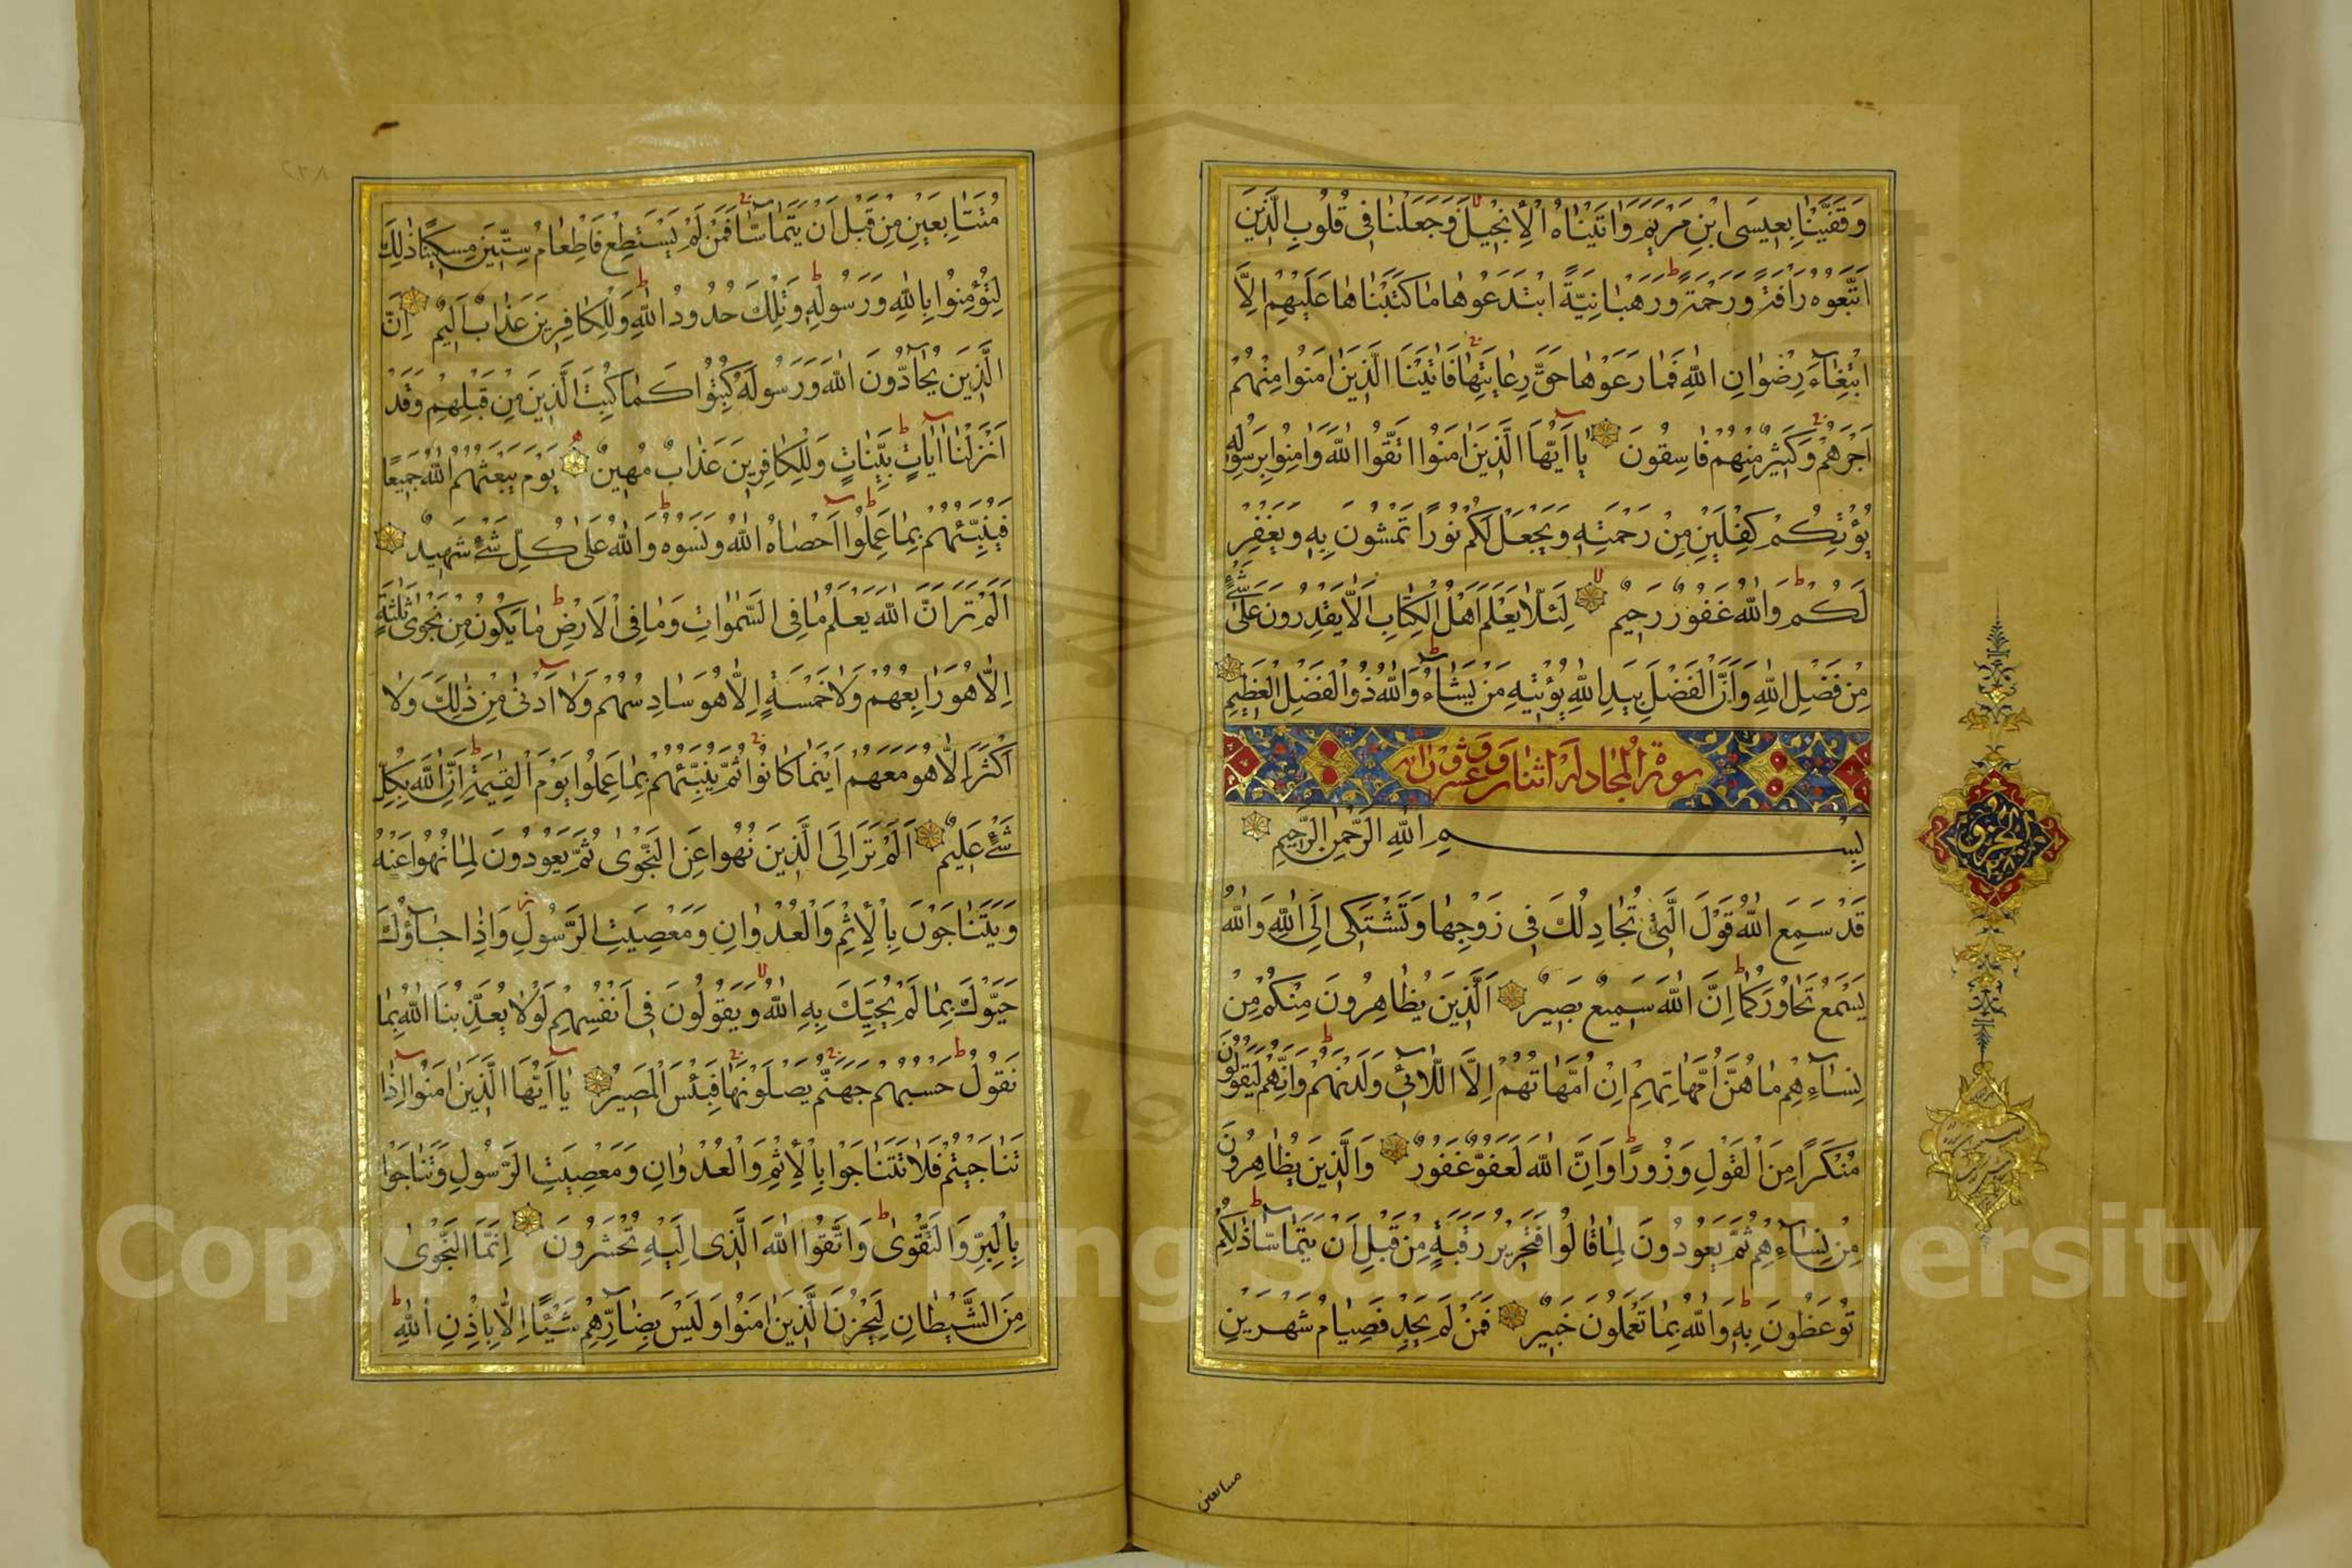 وَقَفَّيْنَا بِعِيسَى ابْنِ مَرْيَمَ وَاٰتَيْنَاهُ الْاِنْجِيلَ وَجَعَلْنَا فِى قُلُوبِ الَّذِينَ
اتَّبَعُوهُ رَاْفَةً وَرَحْمَةً وَرَهْبَانِيَّةً ابْتَدَعُوهَا مَا كَتَبْنَاهَا عَلَيْهِمْ اِلَّا
ابْتِغَآءَ رِضْوَانِ اللّٰهِ فَمَا رَعَوْهَا حَقَّ رِعَايَتِهَا فَاٰتَيْنَا الَّذِينَ اٰمَنُوا مِنْهُمْ
اَجْرَهُمْ وَكَثِيرٌ مِنْهُمْ فَاسِقُونَ يَا اَيُّهَا الَّذِينَ اٰمَنُوا اتَّقُوا اللّٰهَ وَاٰمِنُوا بِرَسُولِهِ
يُؤْتِكُمْ كِفْلَيْنِ مِنْ رَحْمَتِهِ وَيَجْعَلْ لَكُمْ نُورًا تَمْشُونَ بِهِ وَيَغْفِرْ
لَكُمْ وَاللّٰهُ غَفُورٌ رَحِيمٌ لِئَلَّا يَعْلَمَ اَهْلُ الْكِتَابِ اَلَّا يَقْدِرُونَ عَلٰى شَىْءٍ
مِنْ فَضْلِ اللّٰهِ وَاَنَّ الْفَضْلَ بِيَدِ اللّٰهِ يُؤْتِيهِ مَنْ يَشَآءُ وَاللّٰهُ ذُو الْفَضْلِ الْعَظِيمِ
سورة المجادلة اثنان وعشرون اية
بِسْمِ اللّٰهِ الرَّحْمٰنِ الرَّحِيمِ
قَدْ سَمِعَ اللّٰهُ قَوْلَ الَّتِى تُجَادِلُكَ فِى زَوْجِهَا وَتَشْتَكِى اِلَى اللّٰهِ وَاللّٰهُ
يَسْمَعُ تَحَاوُرَكُمَا اِنَّ اللّٰهَ سَمِيعٌ بَصِيرٌ اَلَّذِينَ يُظَاهِرُونَ مِنْكُمْ مِنْ
نِسَآءِهِمْ مَا هُنَّ اُمَّهَاتِهِمْ اِنْ اُمَّهَاتُهُمْ اِلَّا اللَّائِى وَلَدْنَهُمْ وَاِنَّهُمْ لَيَقُولُونَ
مُنْكَرًا مِنَ الْقَوْلِ وَزُورًا وَاِنَّ اللّٰهَ لَعَفُوٌّ غَفُورٌ وَالَّذِينَ يُظَاهِرُونَ
مِنْ نِسَآءِهِمْ ثُمَّ يَعُودُونَ لِمَا قَالُوا فَتَحْرِيرُ رَقَبَةٍ مِنْ قَبْلِ اَنْ يَتَمَآسَّا ذٰلِكُمْ
تُوعَظُونَ بِهِ وَاللّٰهُ بِمَا تَعْمَلُونَ خَبِيرٌ فَمَنْ لَمْ يَجِدْ فَصِيَامُ شَهْرَيْنِ
متتابعين
الحزو
مُتَتَابِعَيْنِ مِنْ قَبْلِ اَنْ يَتَمَآسَّا فَمَنْ لَمْ يَسْتَطِعْ فَاِطْعَامُ سِتِّينَ مِسْكِينًا ذٰلِكَ
لِتُؤْمِنُوا بِاللّٰهِ وَرَسُولِهِ وَتِلْكَ حُدُودُ اللّٰهِ وَلِلْكَافِرِينَ عَذَابٌ اَلِيمٌ اِنَّ
الَّذِينَ يُحَآدُّونَ اللّٰهَ وَرَسُولَهُ كُبِتُوا كَمَا كُبِتَ الَّذِينَ مِنْ قَبْلِهِمْ وَقَدْ
اَنْزَلْنَا اٰيَاتٍ بَيِّنَاتٍ وَلِلْكَافِرِينَ عَذَابٌ مُهِينٌ يَوْمَ يَبْعَثُهُمُ اللّٰهُ جَمِيعًا
فَيُنَبِّئُهُمْ بِمَا عَمِلُوا اَحْصَاهُ اللّٰهُ وَنَسُوهُ وَاللّٰهُ عَلٰى كُلِّ شَىْءٍ شَهِيدٌ
اَلَمْ تَرَ اَنَّ اللّٰهَ يَعْلَمُ مَا فِى السَّمٰوَاتِ وَمَا فِى الْاَرْضِ مَا يَكُونُ مِنْ نَجْوٰى ثَلٰثَةٍ
اِلَّا هُوَ رَابِعُهُمْ وَلَا خَمْسَةٍ اِلَّا هُوَ سَادِسُهُمْ وَلَا اَدْنٰى مِنْ ذٰلِكَ وَلَا
اَكْثَرَ اِلَّا هُوَ مَعَهُمْ اَيْنَمَا كَانُوا ثُمَّ يُنَبِّئُهُمْ بِمَا عَمِلُوا يَوْمَ الْقِيٰمَةِ اِنَّ اللّٰهَ بِكُلِّ
شَىْءٍ عَلِيمٌ اَلَمْ تَرَ اِلَى الَّذِينَ نُهُوا عَنِ النَّجْوٰى ثُمَّ يَعُودُونَ لِمَا نُهُوا عَنْهُ
وَيَتَنَاجَوْنَ بِالْاِثْمِ وَالْعُدْوَانِ وَمَعْصِيَتِ الرَّسُولِ وَاِذَا جَآؤُكَ
حَيَّوْكَ بِمَا لَمْ يُحَيِّكَ بِهِ اللّٰهُ وَيَقُولُونَ فِى اَنْفُسِهِمْ لَوْلَا يُعَذِّبُنَا اللّٰهُ بِمَا
نَقُولُ حَسْبُهُمْ جَهَنَّمُ يَصْلَوْنَهَا فَبِئْسَ الْمَصِيرُ يَا اَيُّهَا الَّذِينَ اٰمَنُوا اِذَا
تَنَاجَيْتُمْ فَلَا تَتَنَاجَوْا بِالْاِثْمِ وَالْعُدْوَانِ وَمَعْصِيَتِ الرَّسُولِ وَتَنَاجَوْا
بِالْبِرِّ وَالتَّقْوٰى وَاتَّقُوا اللّٰهَ الَّذِى اِلَيْهِ تُحْشَرُونَ اِنَّمَا النَّجْوٰى
مِنَ الشَّيْطَانِ لِيَحْزُنَ الَّذِينَ اٰمَنُوا وَلَيْسَ بِضَآرِّهِمْ شَيْئًا اِلَّا بِاِذْنِ اللّٰهِ
Copyright © King Saud University